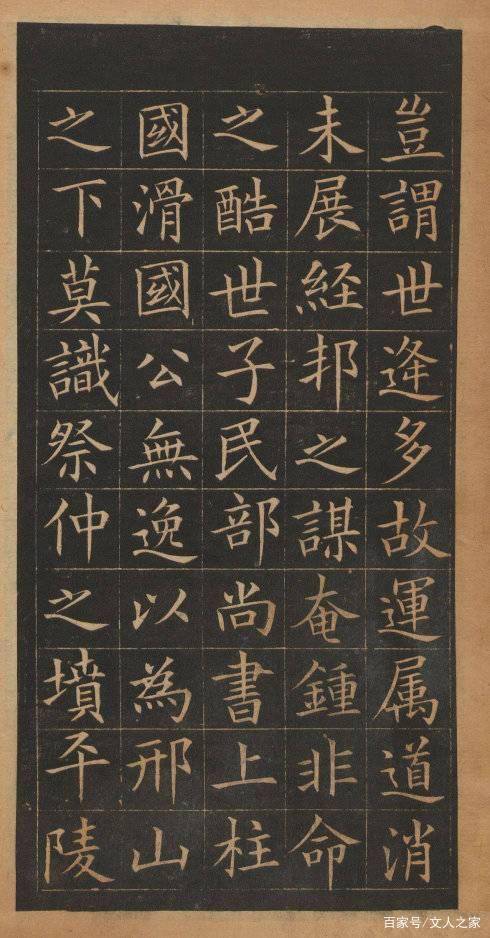 豈謂世逄多故運属道消
未展經邦之謀奄鍾非命
之酷世子民部尚書上柱
國滑國公無逸以為邢山
之下莫識祭仲之墳平陵
百家号/文人之家